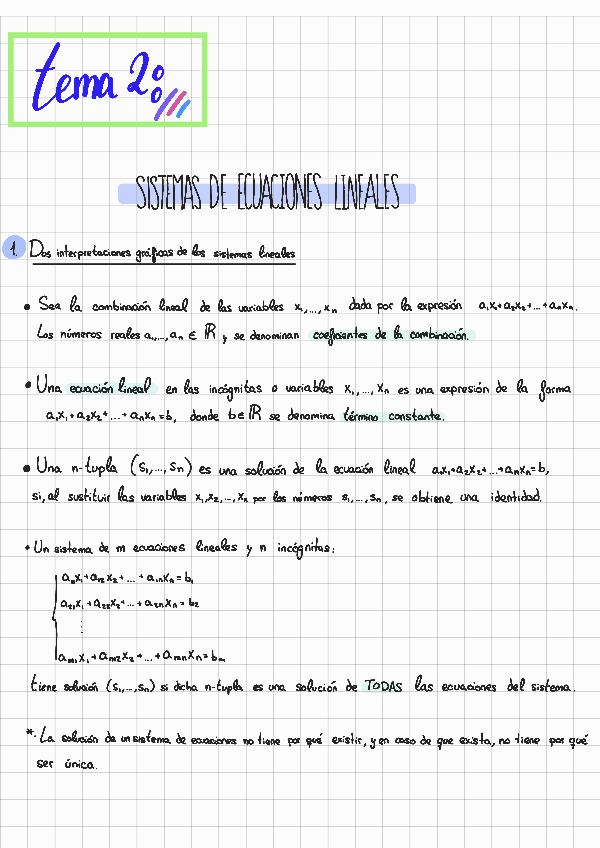 tema 2:
SISTEMAS DE ECUACIONES LINEALES
1. Dos interpretaciones gráficas de los sistemas lineales
• Sea la combinación lineal de las variables x₁,...,xₙ dada por la expresión a₁x₁+a₂x₂+...+aₙxₙ.
Los números reales a₁,...,aₙ ∈ ℝ y se denominan coeficientes de la combinación.
• Una ecuación lineal en las incógnitas o variables x₁,...,xₙ es una expresión de la forma
a₁x₁+a₂x₂+...+aₙxₙ=b, donde b∈ℝ se denomina término constante.
• Una n-tupla (s₁,...,sₙ) es una solución de la ecuación lineal a₁x₁+a₂x₂+...+aₙxₙ=b,
si, al sustituir las variables x₁,x₂,...,xₙ por los números s₁,...,sₙ, se obtiene una identidad.
• Un sistema de m ecuaciones lineales y n incógnitas:
a₁₁x₁+a₁₂x₂+...+a₁ₙxₙ=b₁
a₂₁x₁+a₂₂x₂+...+a₂ₙxₙ=b₂
⋮
aₘ₁x₁+aₘ₂x₂+...+aₘₙxₙ=bₘ
tiene solución (s₁,...,sₙ) si dicha n-tupla es una solución de TODAS las ecuaciones del sistema.
*· La solución de un sistema de ecuaciones no tiene por qué existir, y en caso de que exista, no tiene por qué
ser única.